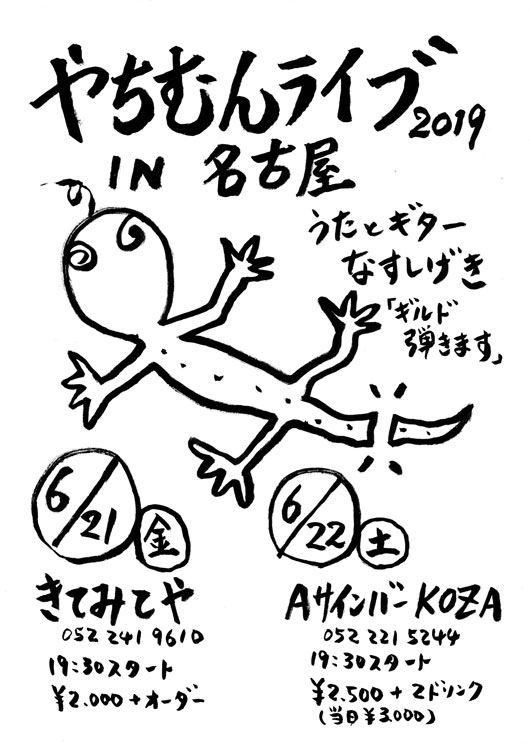 やちむんライブ2019
IN 名古屋
うたとギター
なすしげき
「ギルド
弾きます」
6/21 金
きてみてや
052 241 9610
19:30スタート
¥2.000+オーダー
6/22 土
AサインバーKOZA
052 221 5244
19:30スタート
¥2.500+2ドリンク
(当日¥3.000)